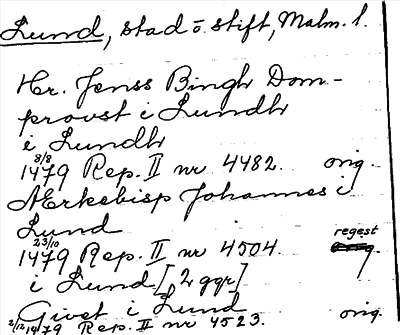 Lund, stad o. stift, Malm. l.
Hr. Jenss Bingh Dom-
provst i Lundh
i Lundh
8/8
1479 Rep. II nr 4482. orig.
Ærkebisp Johannes i
Lund
23/10
1479 Rep. II nr 4504. regest
i Lund [2 ggr]
Givet i Lund
2/12 1479 Rep. II nr 4523. orig.